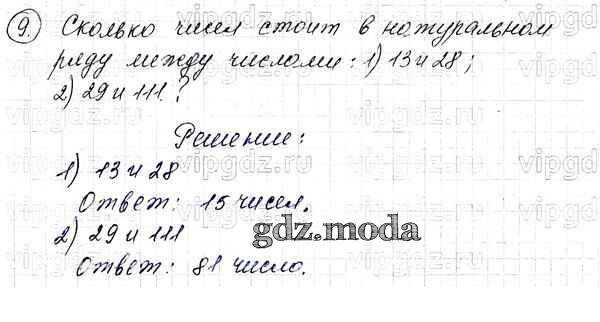 9. Сколько чисел стоит в натуральном
ряду между числами: 1) 13 и 28;
2) 29 и 111?
Решение:
1) 13 и 28
Ответ: 15 чисел.
2) 29 и 111
gdz.moda
Ответ: 81 число.